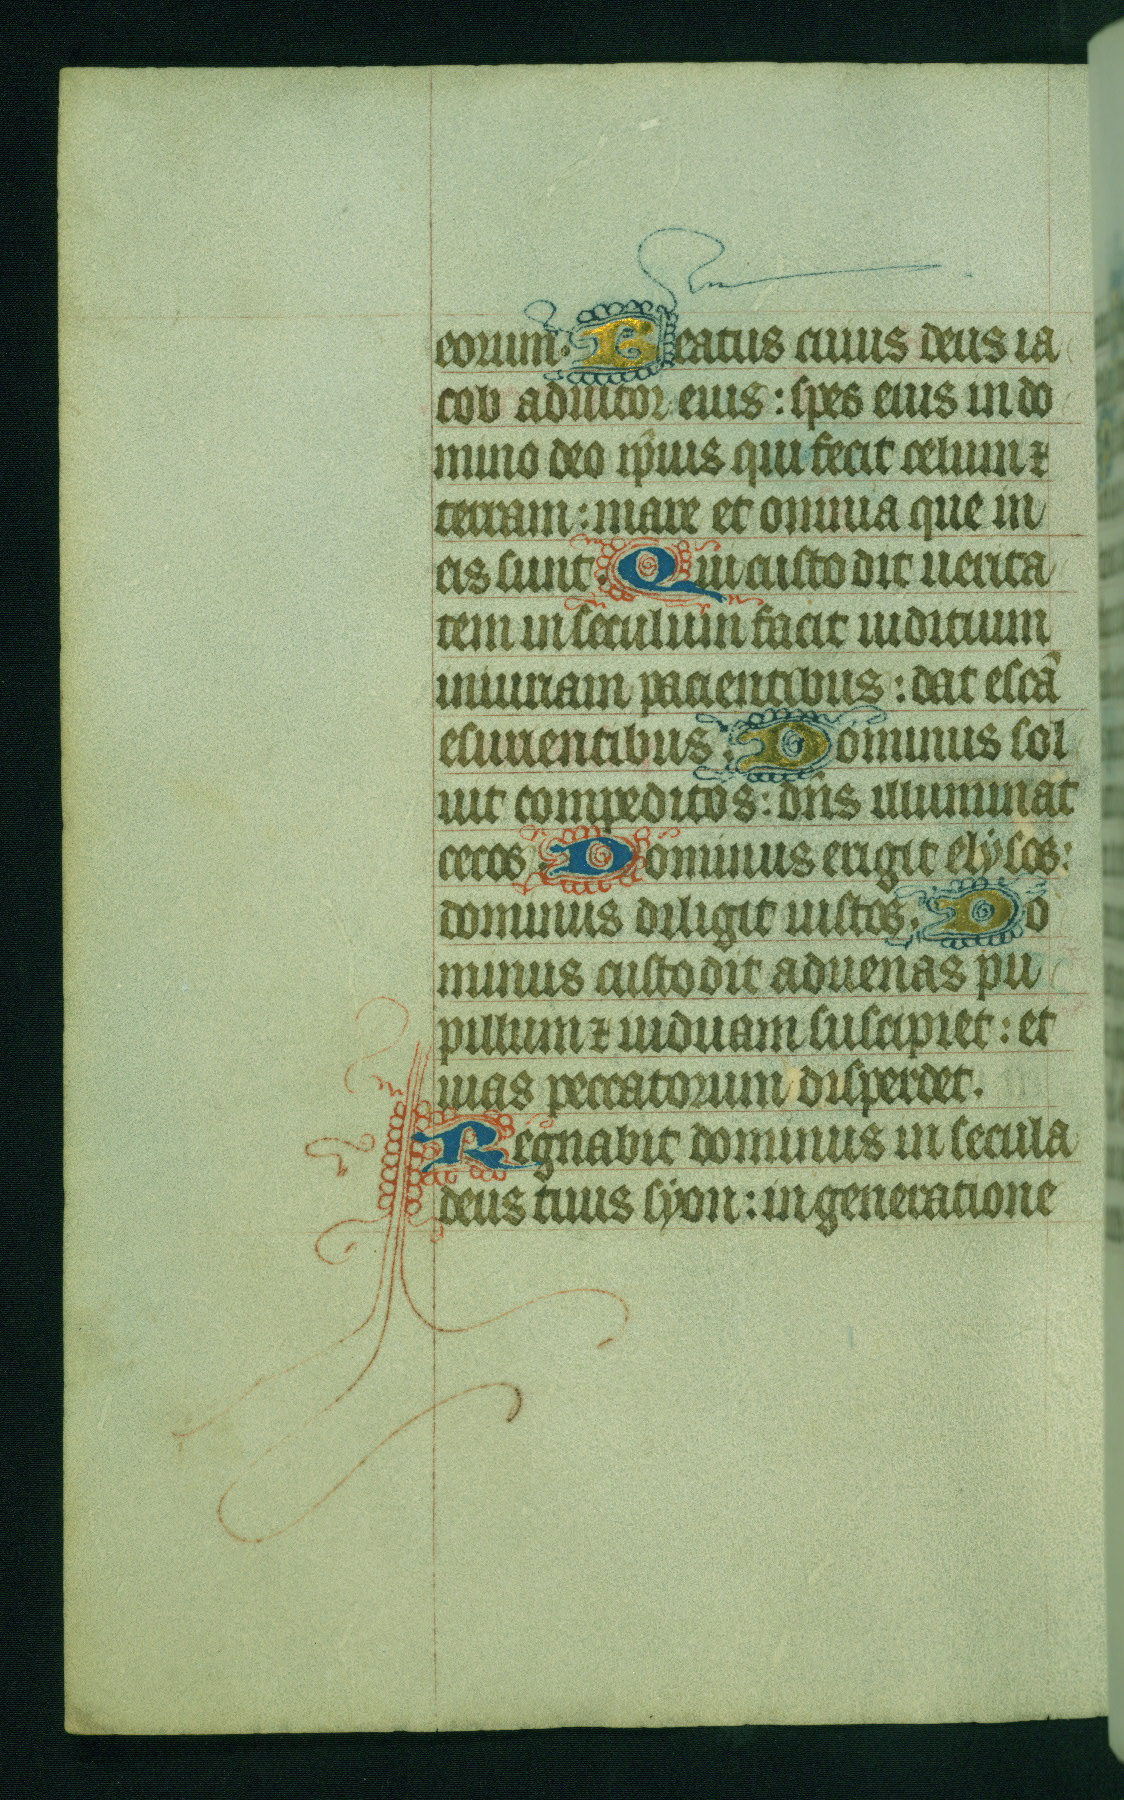 eorum. Beatus cuius deus ia
cob adiutor eius : spes eius in do
mino deo ip̄ius qui fecit celum ⁊
terram : mare et omnia que in
eis sunt. Qui custodit uerita
tem in seculum facit iuditium
iniuriam pacientibus : dat escā
esurientibus. Dominus sol
uit compeditos : dn̄s illuminat
cecos. Dominus erigit elysos :
dominus diligit iustos. Do
minus custodit aduenas pu
pillum ⁊ uiduam suscipiet : et
uias peccatorum disperdet.
Regnabit dominus in secula
deus tuus syon : in generatione